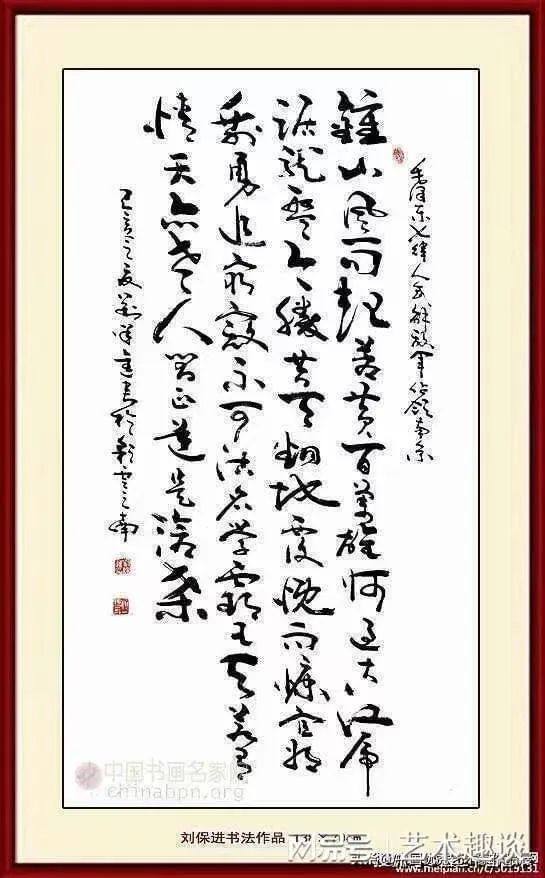 毛泽东七律人民解放军占领南京
鍾山风雨起苍黄百萬雄师过大江虎
踞龙盘今胜昔天翻地覆慨而慷宜将
剩勇追穷寇不可沽名学霸王天若有
情天亦老人间正道是沧桑
己亥之夏刘保进书於彩云之南
中国书画名家网
chinabhpn.org
刘保进书法作品
搜狐号@艺术趣谈